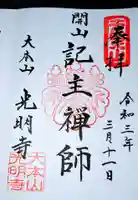 奉拝
令和三年三月十一日
開山
記主禅師
大本山
光明寺
大本山
光明寺